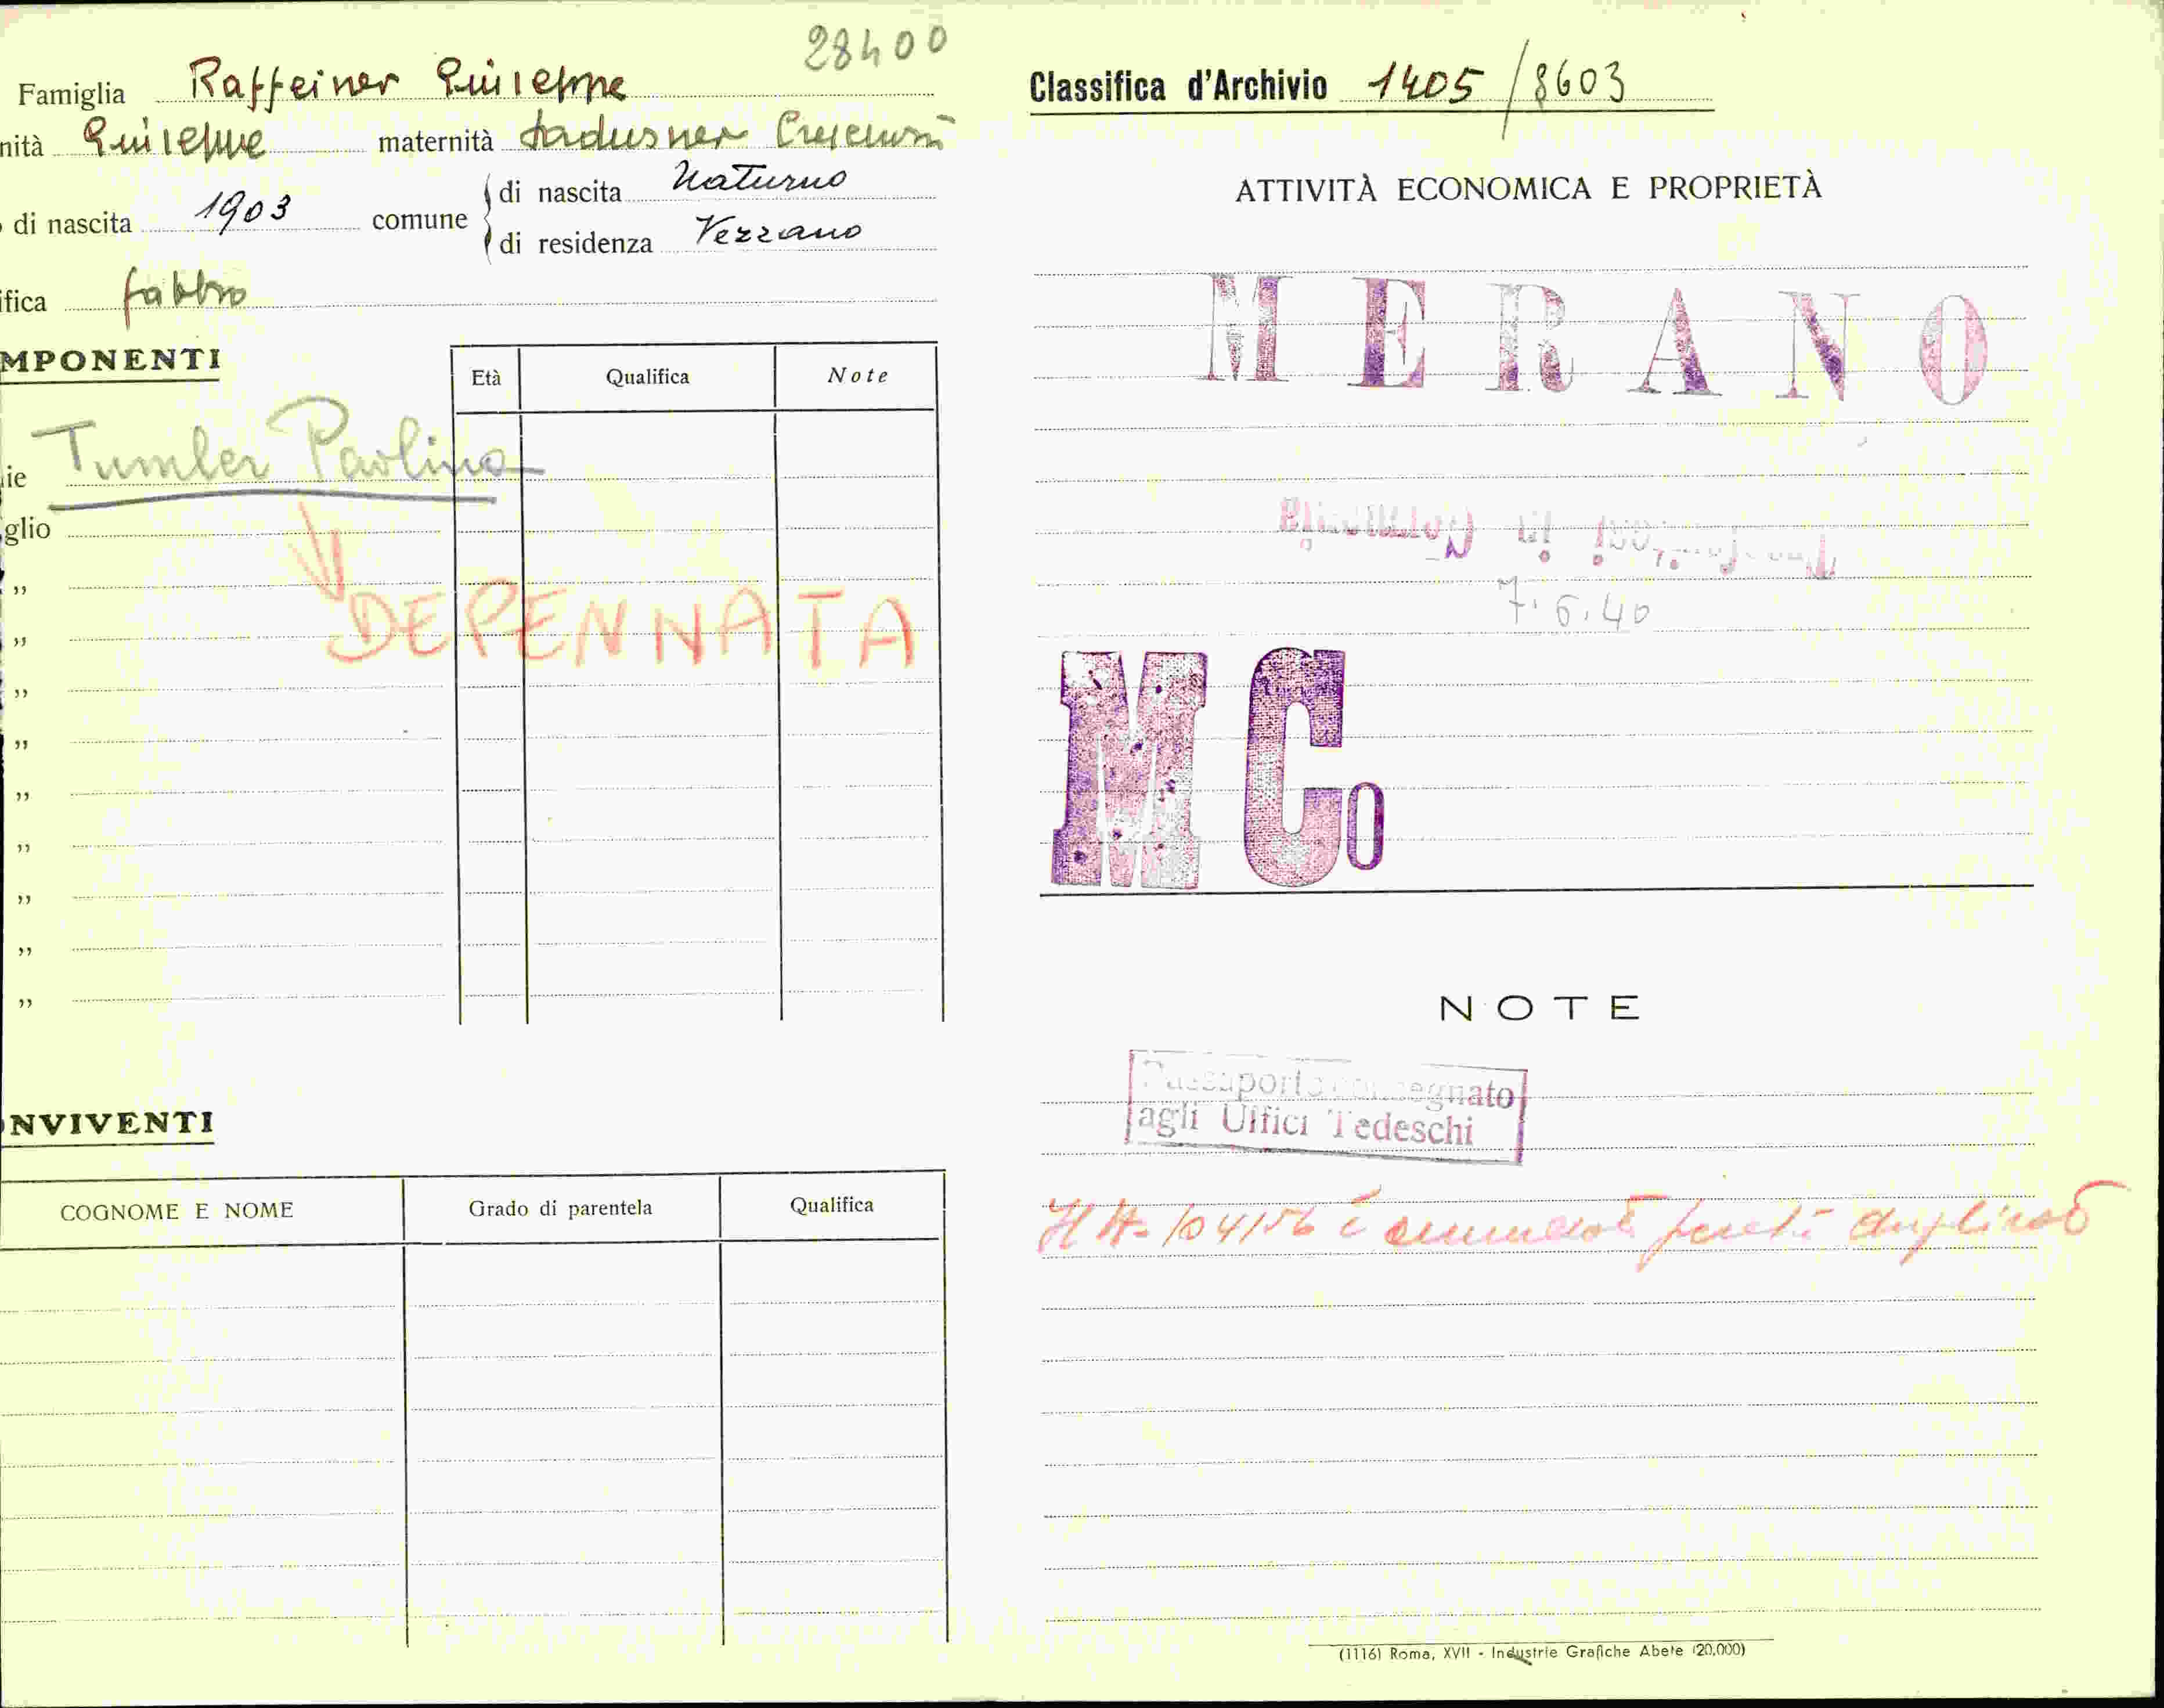 28400
Famiglia Raffeiner Giuseppe
nità Giuseppe maternità
di nascita 1903 comune di nascita Naturno
di residenza Vezzano
ifica fabbro
MPONENTI
Età Qualifica Note
ie Tumler Paolina
glio
DEPENNATA
,,
,,
,,
,,
,,
,,
,,
,,
,,
NVIVENTI
COGNOME E NOME Grado di parentela Qualifica
Classifica d'Archivio 1405/8603
ATTIVITÀ ECONOMICA E PROPRIETÀ
MERANO
7.6.40
MCo
NOTE
Passaporto consegnato
agli Uffici Tedeschi
(1116) Roma, XVII - Industrie Grafiche Abete (20.000)